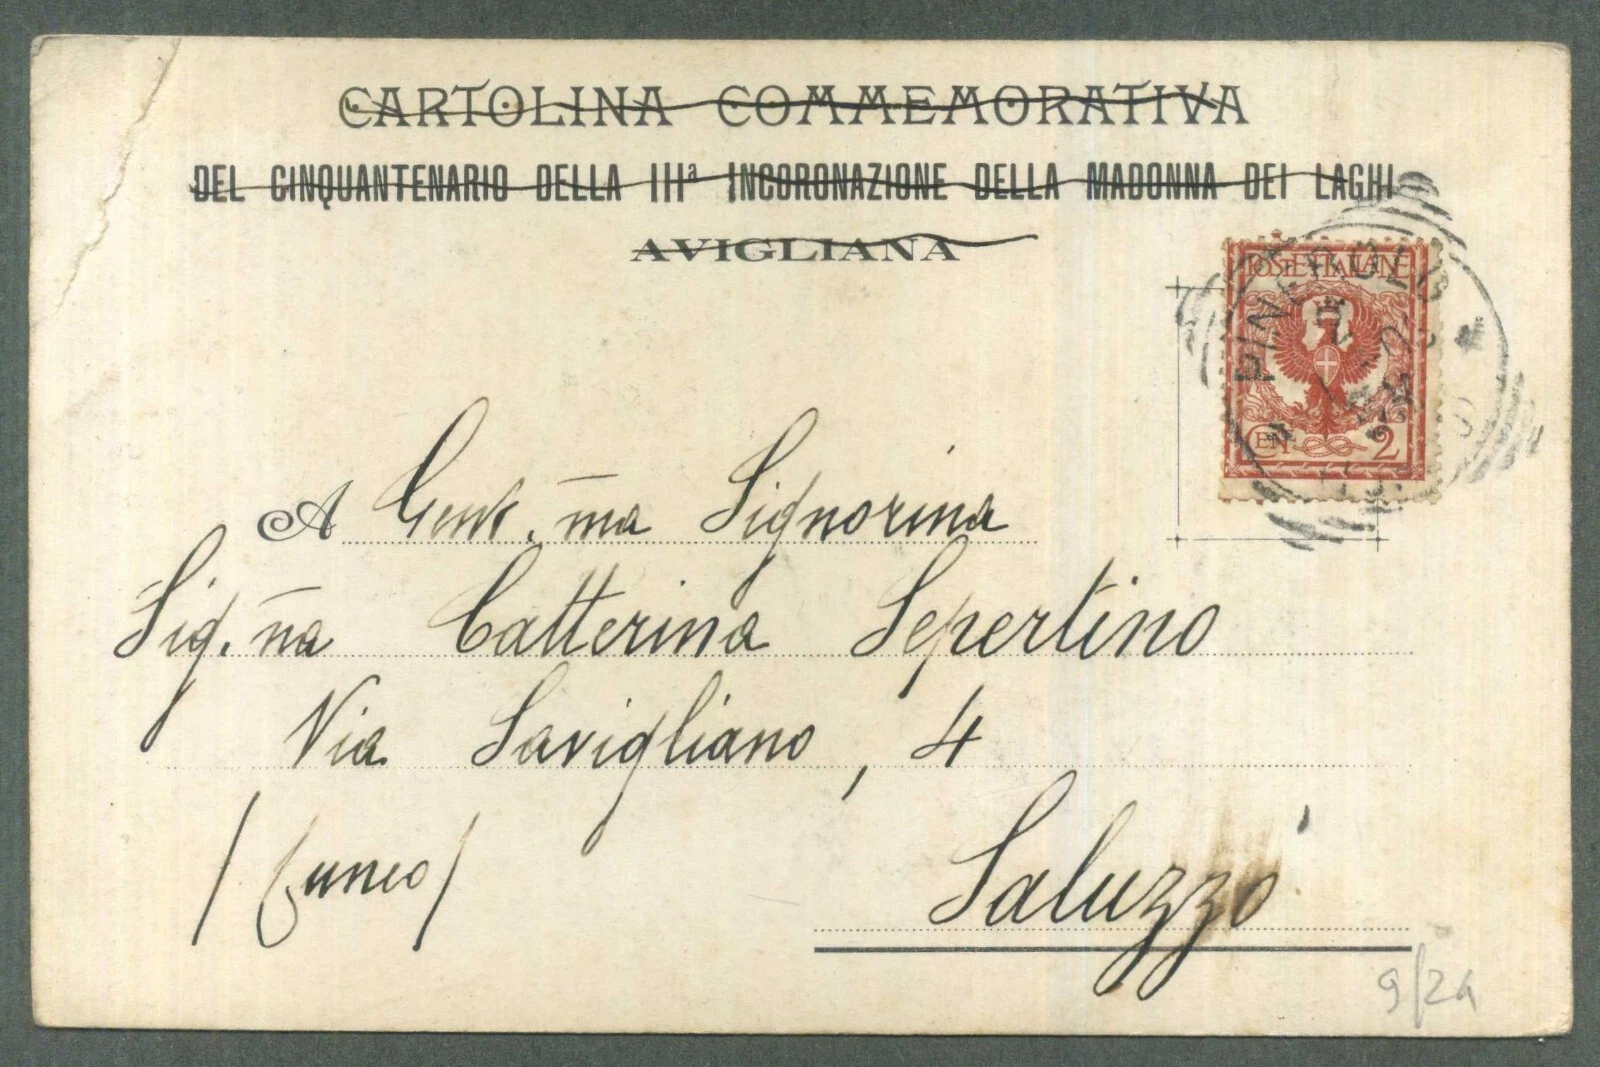 CARTOLINA COMMEMORATIVA
DEL CINQUANTENARIO DELLA IIIª INCORONAZIONE DELLA MADONNA DEI LAGHI
AVIGLIANA
POSTE ITALIANE
CENT. 2
PINEROLO
A Gent.ma Signorina
Sig.na Catterina Sepertino
Via Savigliano, 4
/Cuneo/
Saluzzo
9/24